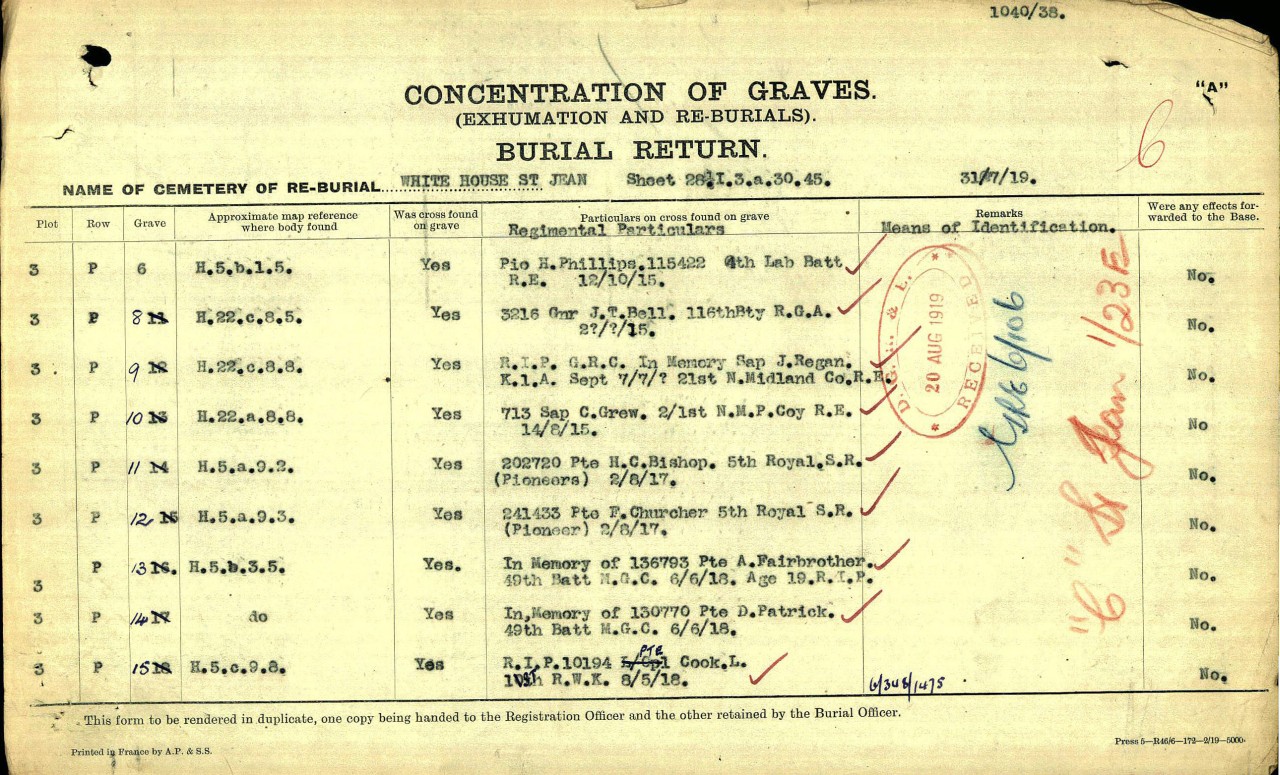 1040/38.
CONCENTRATION OF GRAVES.
"A"
(EXHUMATION AND RE-BURIALS).
6
BURIAL RETURN.
NAME OF CEMETERY OF RE-BURIAL WHITE HOUSE ST JEAN Sheet 28 I.3.a.30.45. 31/7/19.
Plot Row Grave Approximate map reference where body found Was cross found on grave Particulars on cross found on grave Remarks Were any effects forwarded to the Base.
Regimental Particulars Means of Identification.
3 P 6 H.5.b.1.5. Yes Pio H.Phillips.115422 4th Lab Batt No.
R.E. 12/10/15.
3 P 8 H.22.c.8.5. Yes 3216 Gnr J.T.Bell. 116thBty R.G.A. No.
2?/?/15.
3 P 9 12 H.22.c.8.8. Yes R.I.P. G.R.C. In Memory Sap J.Regan. No.
K.i.A. Sept 7/7/? 21st N.Midland Co.R.E.
3 P 10 13 H.22.a.8.8. Yes 713 Sap C.Grew. 2/1st N.M.P.Coy R.E. No
14/8/15.
3 P 11 14 H.5.a.9.2. Yes 202720 Pte H.C.Bishop. 5th Royal.S.R. No.
(Pioneers) 2/8/17.
3 P 12 15 H.5.a.9.3. Yes 241433 Pte F.Churcher 5th Royal S.R. No.
(Pioneer) 2/8/17.
3 P 13 16. H.5.b.3.5. Yes. In Memory of 136793 Pte A.Fairbrother. No.
49th Batt M.G.C. 6/6/18. Age 19.R.I.P.
3 P 14 17 do Yes In,Memory of 130770 Pte D.Patrick. No.
49th Batt M.G.C. 6/6/18.
PTE
3 P 15 18 H.5.c.9.8. Yes R.I.P.10194 L/Cpl Cook.L. No.
R.W.K. 8/5/18.
6/348/1475
D.G. & L.
20 AUG 1919
RECEIVED
6/106
"C" St Jean 1/23E
This form to be rendered in duplicate, one copy being handed to the Registration Officer and the other retained by the Burial Officer.
Printed in France by A.P. & S.S.
Press 5—R46/6—172—2/19—5000.